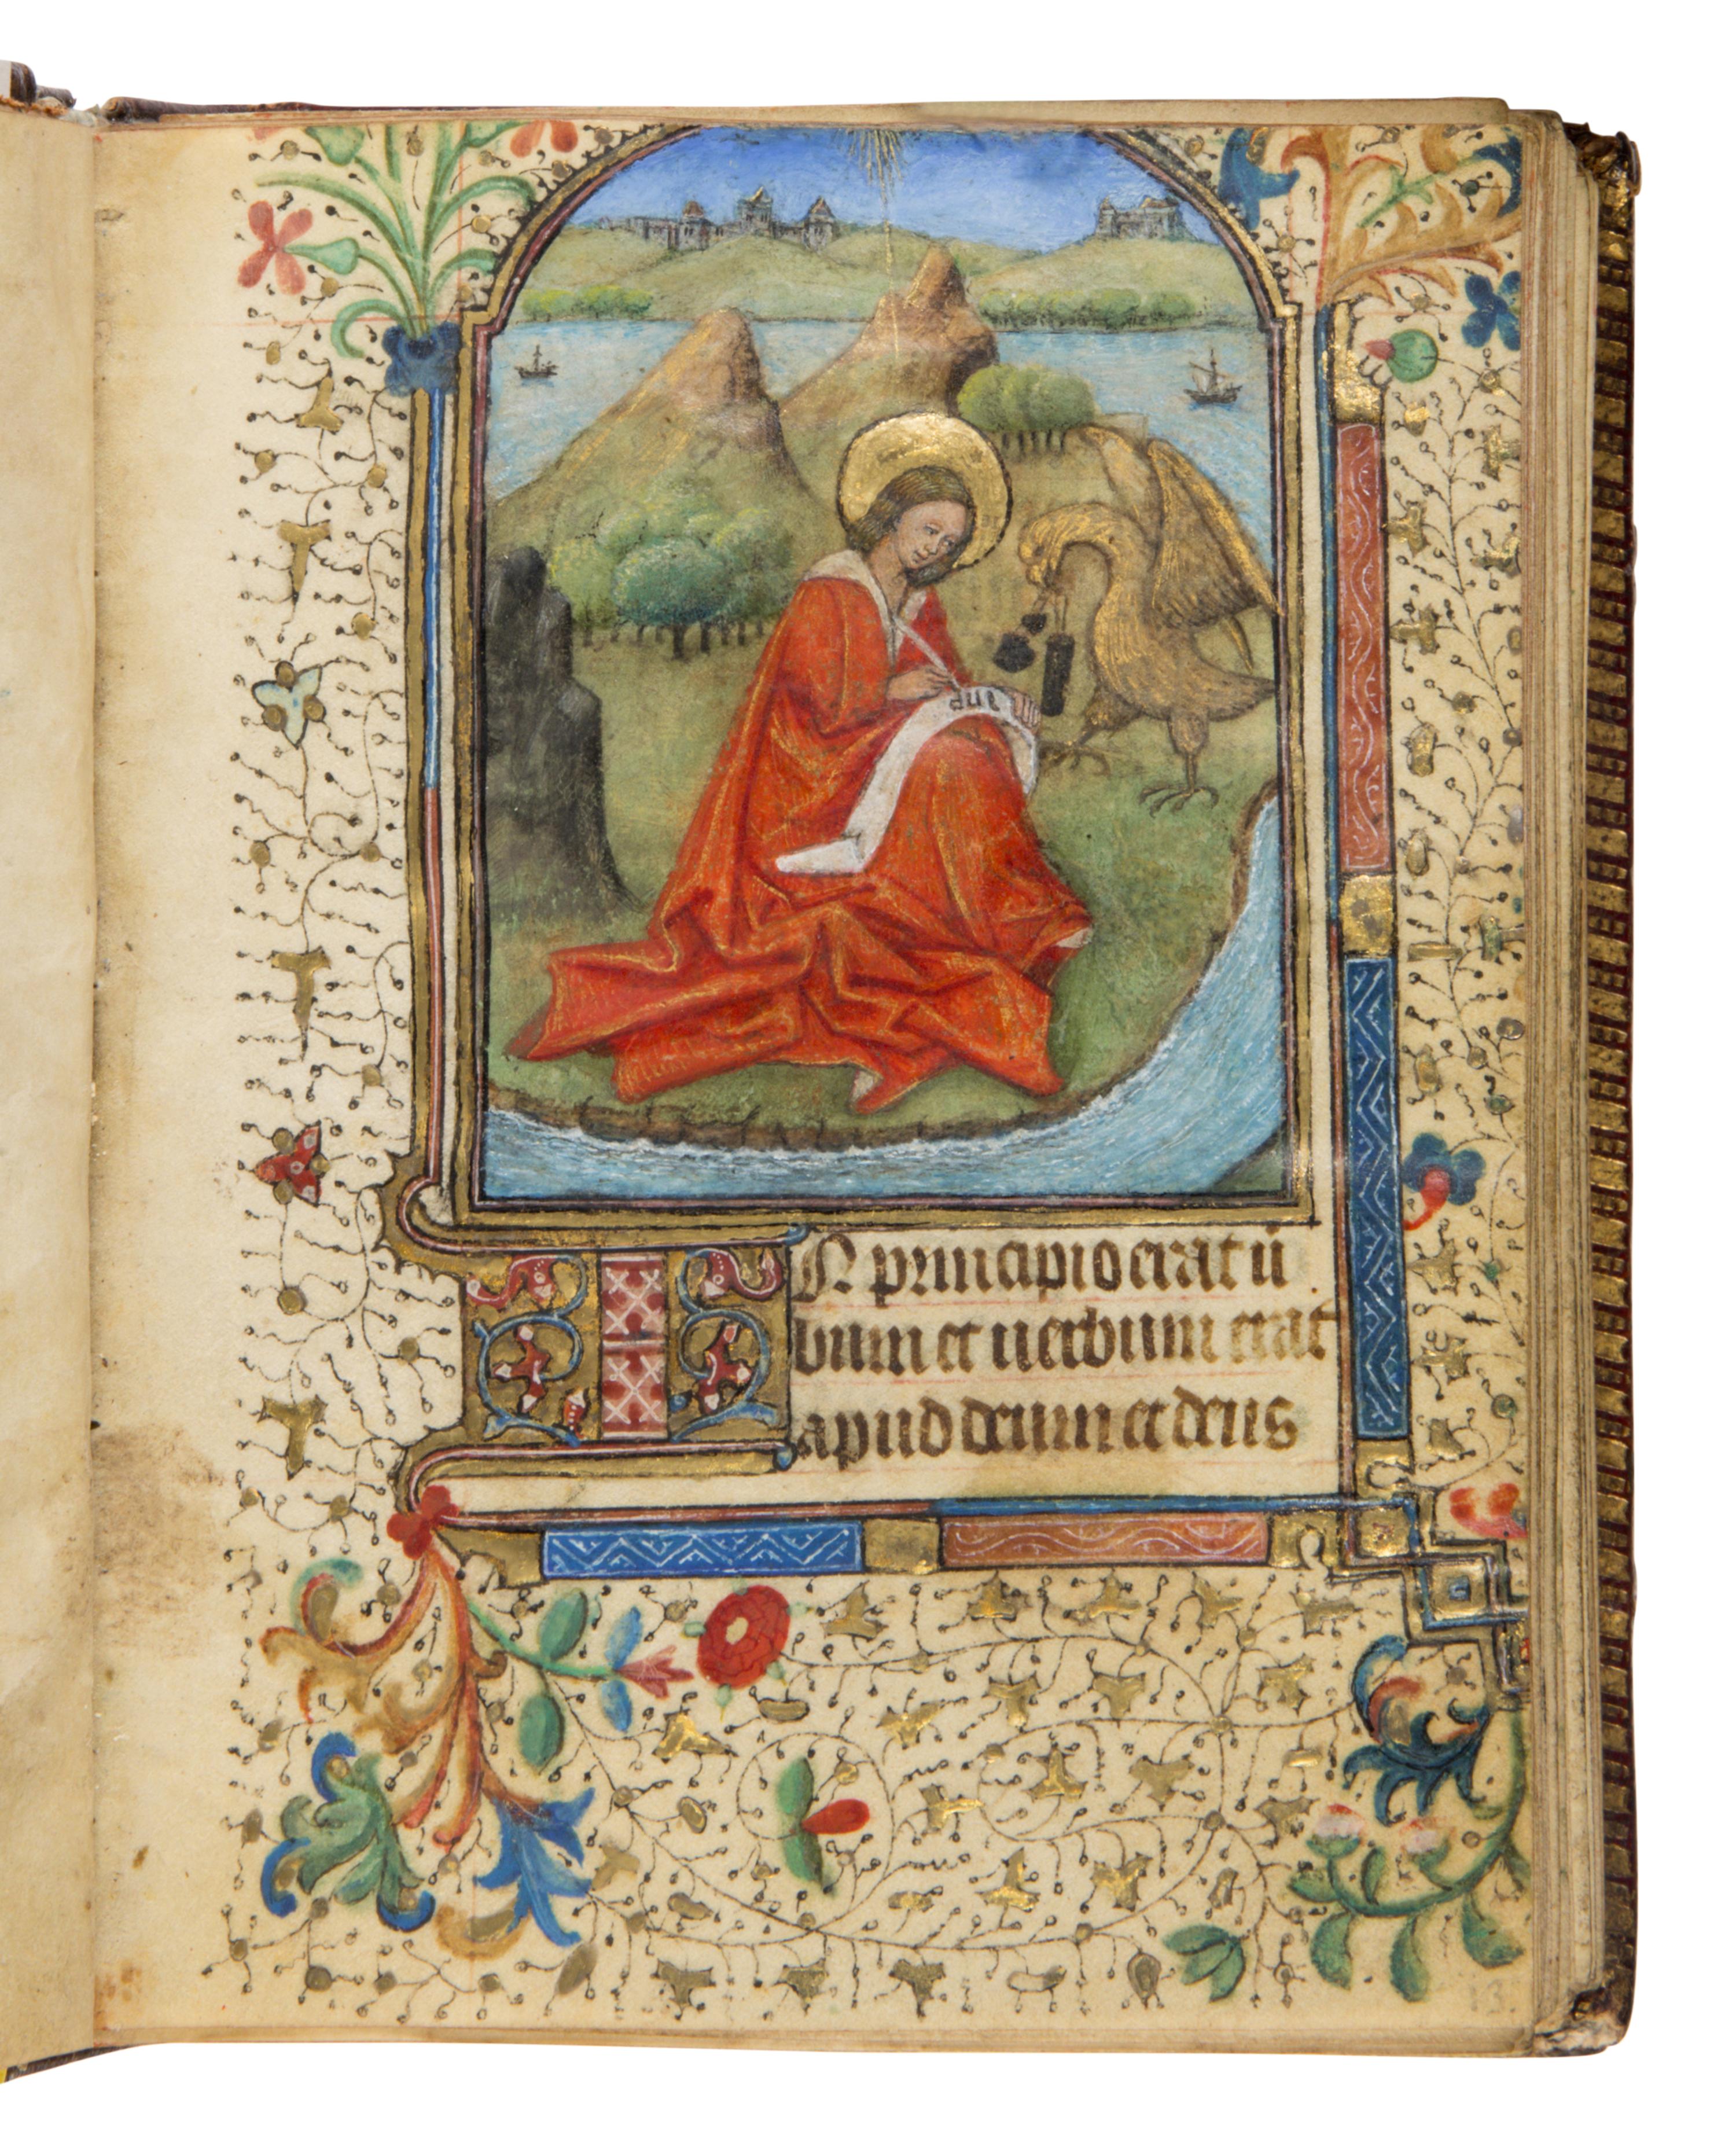 due
IN principio erat ū
bum et uerbum erat
apud deum et deus
13.